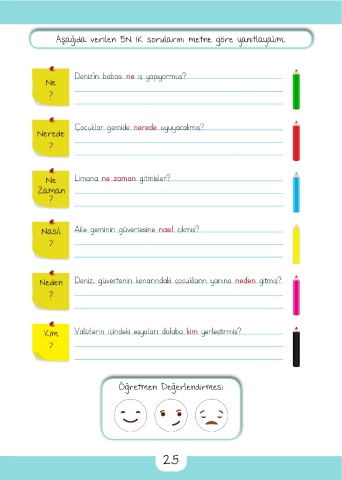 Aşağıda verilen 5N 1K sorularını metne göre yanıtlayalım.
Ne
?
Deniz'in babası ne iş yapıyormuş?
Nerede
?
Çocuklar gemide nerede uyuyacakmış?
Ne
Zaman
?
Limana ne zaman gitmişler?
Nasıl
?
Aile geminin güvertesine nasıl çıkmış?
Neden
?
Deniz, güvertenin kenarındaki çocukların yanına neden gitmiş?
Kim
?
Valizlerin içindeki eşyaları dolaba kim yerleştirmiş?
Öğretmen Değerlendirmesi
25